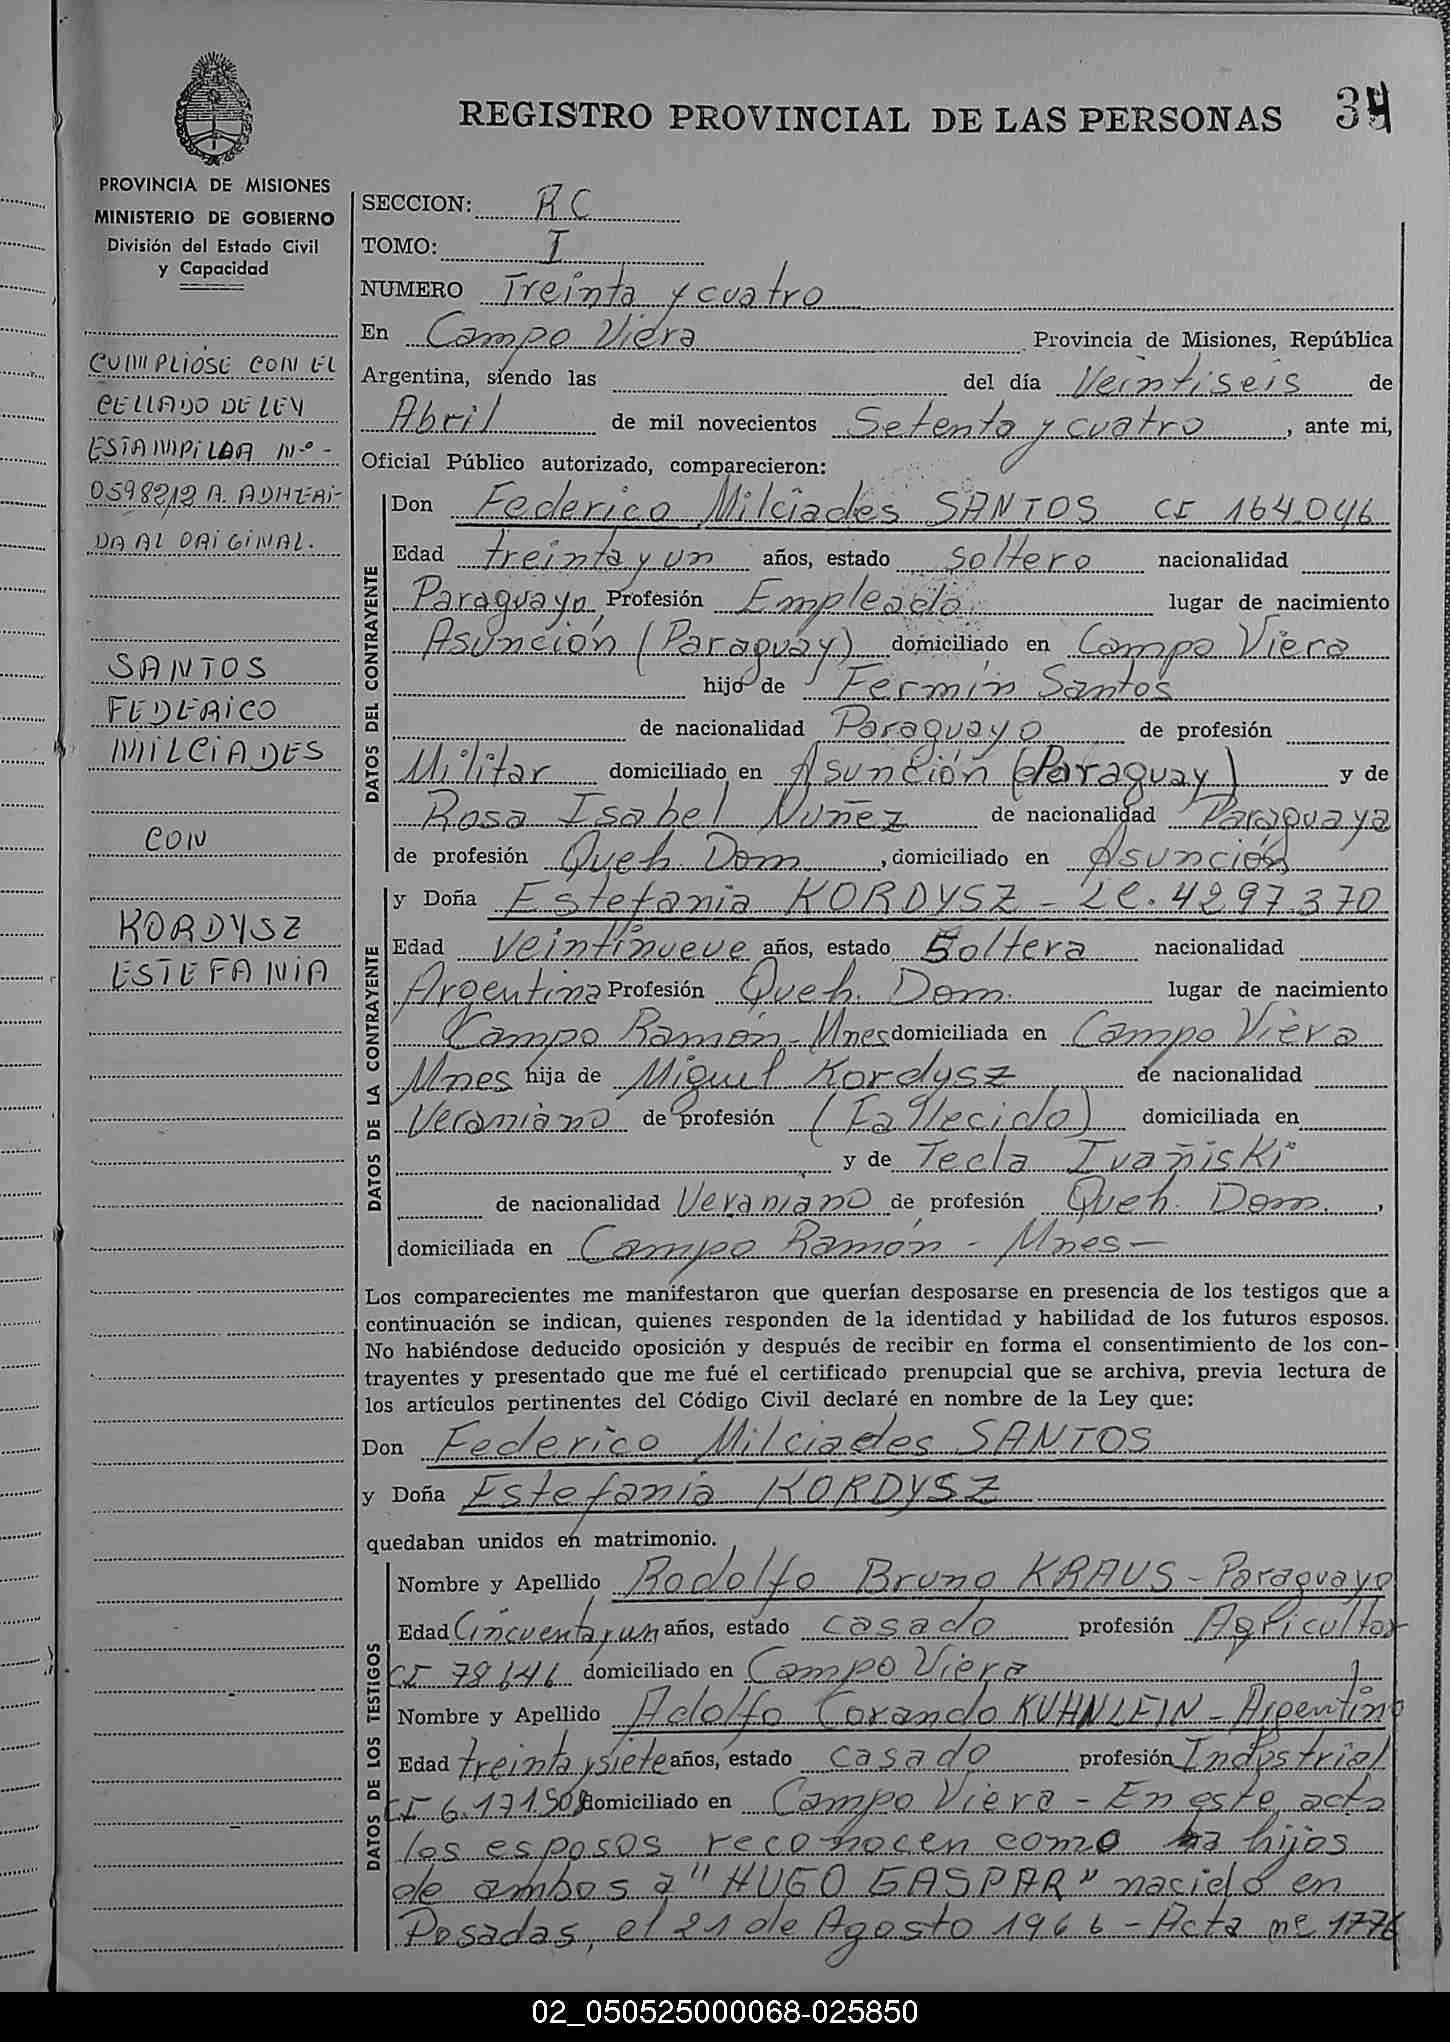 REGISTRO PROVINCIAL DE LAS PERSONAS 34
PROVINCIA DE MISIONES
MINISTERIO DE GOBIERNO
División del Estado Civil
y Capacidad
CUMPLIÓSE CON EL
CELLADO DE LEY
ESTAMPILLA Nº -
0598212 A. ADHERI-
DA AL ORIGINAL.
SANTOS
FEDERICO
MILCIADES
CON
KORDYSZ
ESTEFANIA
SECCION: RC
TOMO: I
NUMERO Treinta y cuatro
En Campo Viera Provincia de Misiones, República
Argentina, siendo las del día Veintiseis de
Abril de mil novecientos Setenta y cuatro, ante mi,
Oficial Público autorizado, comparecieron:
DATOS DEL CONTRAYENTE
Don Federico Milciades SANTOS CI 164.046
Edad treinta y un años, estado soltero nacionalidad
Paraguayo, Profesión Empleado lugar de nacimiento
Asunción (Paraguay) domiciliado en Campo Viera
hijo de Fermín Santos
de nacionalidad Paraguayo de profesión
Militar domiciliado en Asunción (Paraguay) y de
Rosa Isabel Nuñez de nacionalidad Paraguaya
de profesión Queh. Dom. , domiciliado en Asunción
DATOS DE LA CONTRAYENTE
y Doña Estefania KORDYSZ - LC. 4297.370
Edad Veintinueve años, estado Soltera nacionalidad
Argentina Profesión Queh. Dom. lugar de nacimiento
Campo Ramón - Mnes domiciliada en Campo Viera
Mnes hija de Miguel Kordysz de nacionalidad
Ucraniano de profesión (Fallecido) domiciliada en
y de Tecla Ivañiski
de nacionalidad Ucraniano de profesión Queh. Dom. ,
domiciliada en Campo Ramón - Mnes -
Los comparecientes me manifestaron que querían desposarse en presencia de los testigos que a
continuación se indican, quienes responden de la identidad y habilidad de los futuros esposos.
No habiéndose deducido oposición y después de recibir en forma el consentimiento de los con-
trayentes y presentado que me fué el certificado prenupcial que se archiva, previa lectura de
los artículos pertinentes del Código Civil declaré en nombre de la Ley que:
Don Federico Milciades SANTOS
y Doña Estefania KORDYSZ
quedaban unidos en matrimonio.
DATOS DE LOS TESTIGOS
Nombre y Apellido Rodolfo Bruno KRAUS - Paraguayo
Edad Cincuenta y un años, estado casado profesión Agricultor
CI 78646 domiciliado en Campo Viera
Nombre y Apellido Adolfo Corando KUHNLEIN - Argentino
Edad treinta y siete años, estado casado profesión Industrial
CI 6.171.508 domiciliado en Campo Viera - En este acto
los esposos reconocen como hijos
de ambos a "HUGO GASPAR" nacido en
Posadas, el 21 de Agosto 1966 - Acta nº 1776
02_050525000068-025850